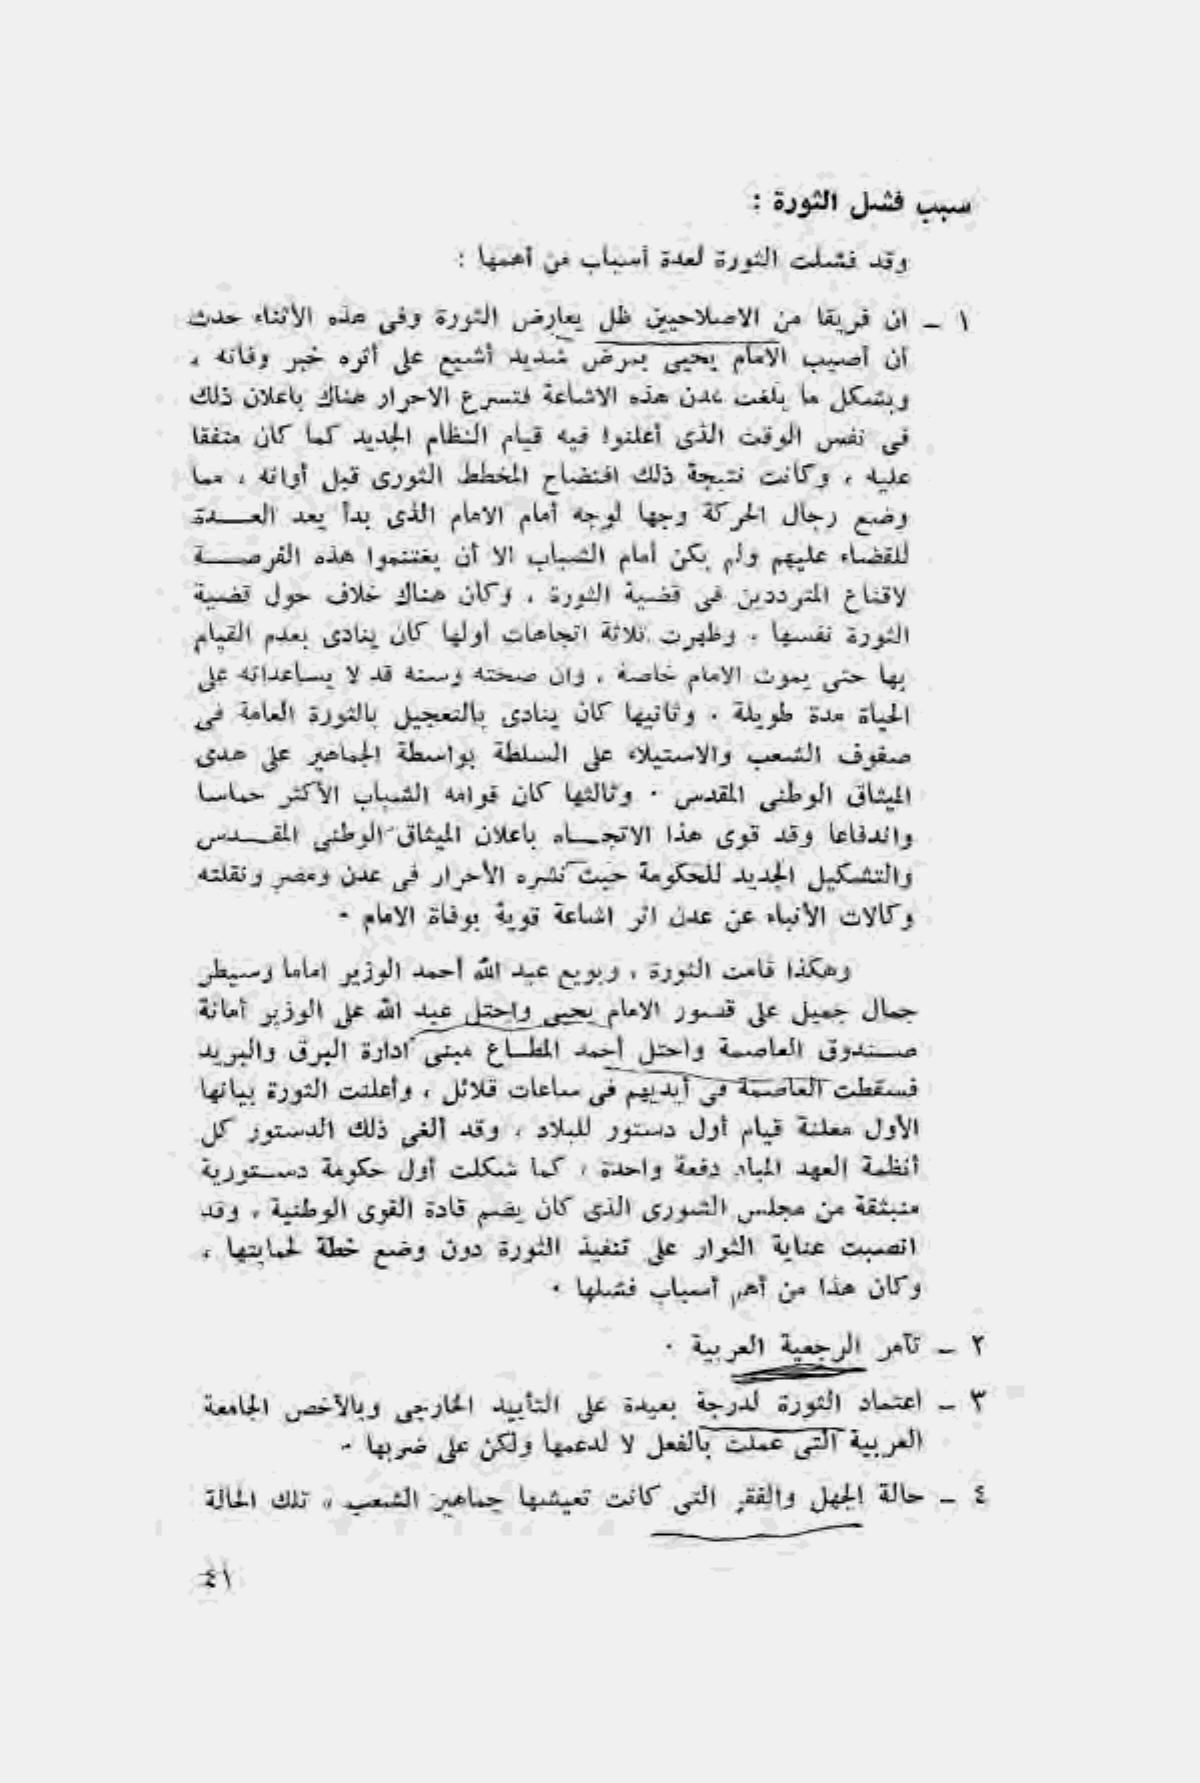 سبب فشل الثورة :
وقد فشلت الثورة لعدة أسباب من أهمها :
١ ــ ان فريقا من الاصلاحيين ظل يعارض الثورة وفى هذه الأثناء حدث
أن أصيب الامام يحيى بمرض شديد أشيع على أثره خبر وفاته ،
وبشكل ما بلغت عدن هذه الاشاعة فتسرع الاحرار هناك باعلان ذلك
فى نفس الوقت الذى أعلنوا فيه قيام النظام الجديد كما كان متفقا
عليه ، وكانت نتيجة ذلك افتضاح المخطط الثورى قبل أوانه ، مما
وضع رجال الحركة وجها لوجه أمام الامام الذى بدأ يعد العــدة
للقضاء عليهم ولم يكن أمام الشباب الا أن يغتنموا هذه الفرصــة
لاقناع المترددين فى قضية الثورة . وكان هناك خلاف حول قضية
الثورة نفسها . وظهرت ثلاثة اتجاهات أولها كان ينادى بعدم القيام
بها حتى يموت الامام خاصة . وان صحته وسنه قد لا يساعدانه على
الحياة مدة طويلة . وثانيها كان ينادى بالتعجيل بالثورة العامة فى
صفوف الشعب والاستيلاء على السلطة بواسطة الجماهير على هدى
الميثاق الوطنى المقدس . وثالثها كان قوامه الشباب الأكثر حماسا
واندفاعا وقد قوى هذا الاتجــاه باعلان الميثاق الوطنى المقــدس
والتشكيل الجديد للحكومة حيث نشره الأحرار فى عدن ومصر ونقلته
وكالات الأنباء عن عدن اثر اشاعة قوية بوفاة الامام .
وهكذا قامت الثورة ، وبويع عبد الله أحمد الوزير اماما وسيطر
جمال جميل على قصور الامام يحيى واحتل عبد الله على الوزير أمانة
صــندوق العاصمة واحتل أحمد المطــاع مبنى ادارة البرق والبريد
فسقطت العاصمة فى أيديهم فى ساعات قلائل ، وأعلنت الثورة بيانها
الأول معلنة قيام أول دستور للبلاد ، وقد ألغى ذلك الدستور كل
أنظمة العهد المباد دفعة واحدة ، كما شكلت أول حكومة دســتورية
منبثقة من مجلس الشورى الذى كان يضم قادة القوى الوطنية ، وقد
انصبت عناية الثوار على تنفيذ الثورة دون وضع خطة لحمايتها ،
وكان هذا من أهم أسباب فشلها .
٢ ــ تآمر الرجعية العربية .
٣ ــ اعتماد الثورة لدرجة بعيدة على التأييد الخارجى وبالأخص الجامعة
العربية التى عملت بالفعل لا لدعمها ولكن على ضربها .
٤ ــ حالة الجهل والفقر التى كانت تعيشها جماهير الشعب ، تلك الحالة
٤١